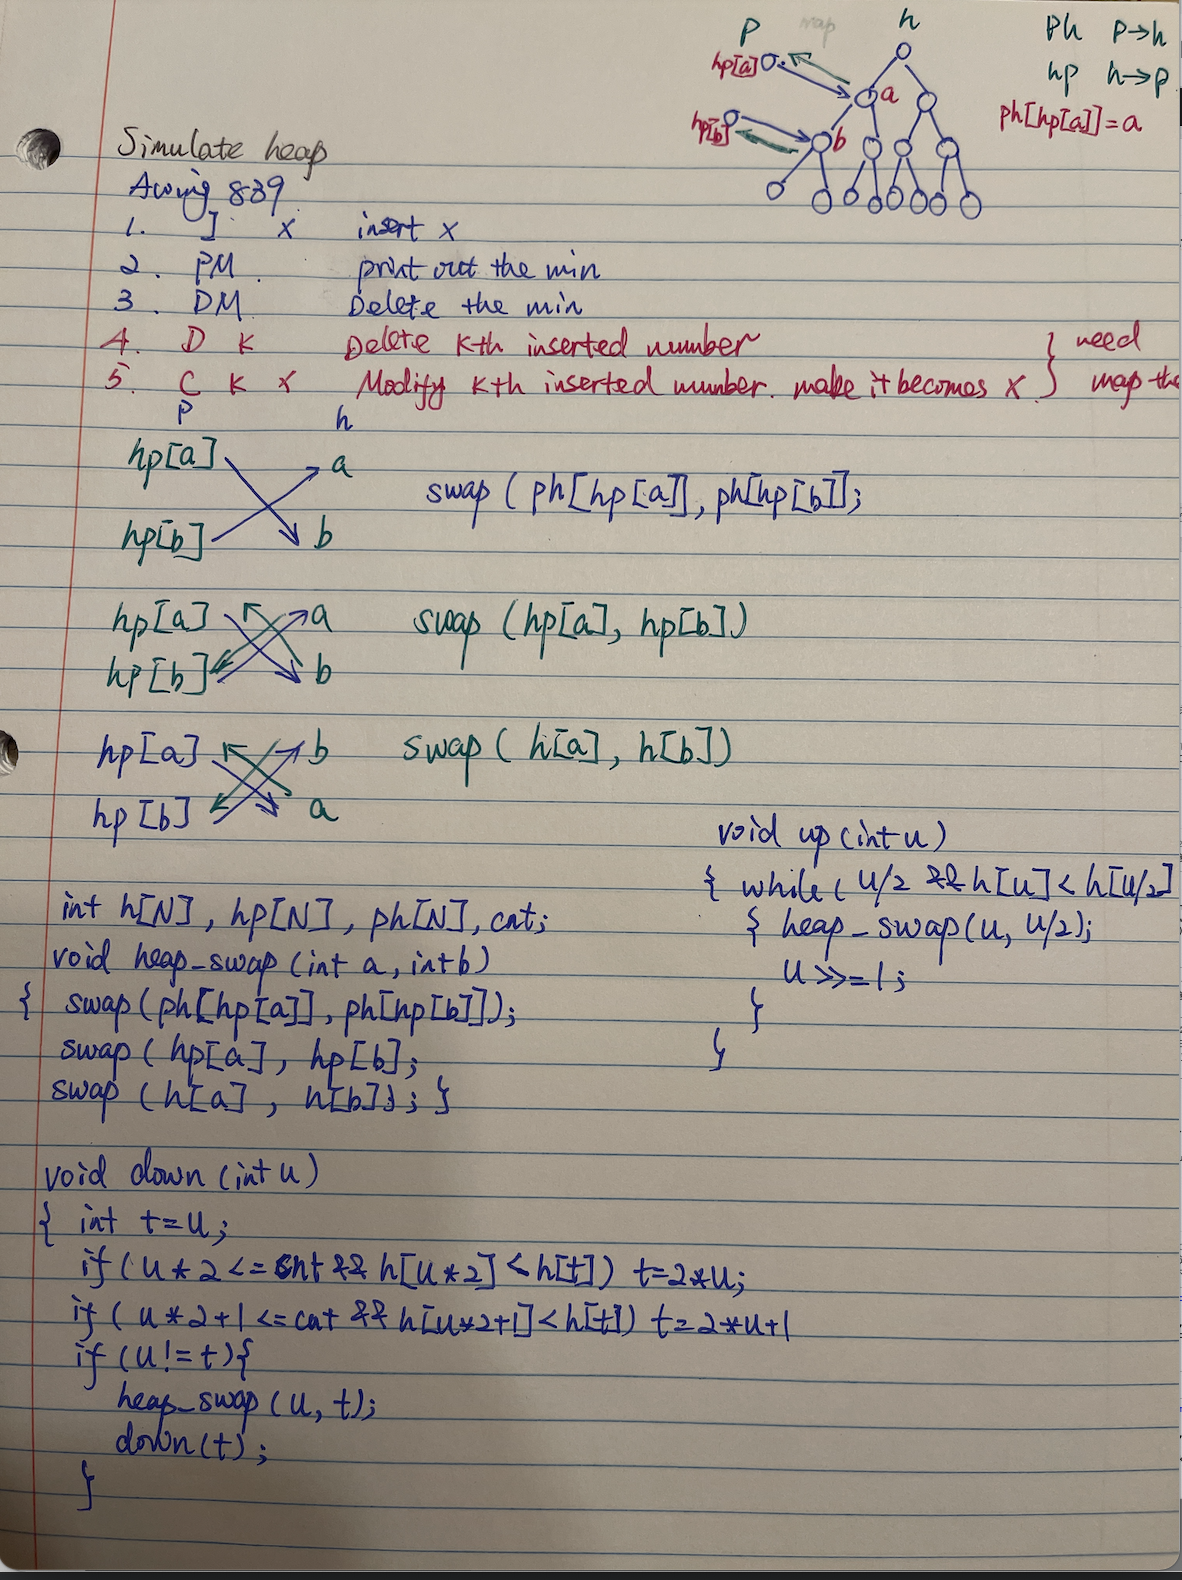 P map h Ph P→h
hp[a] a hp h→p
hp[b] b ph[hp[a]]=a
Simulate heap
Acwing 839
1. I x insert x
2. PM. print out the min
3. DM Delete the min
4. D K Delete K-th inserted number } need
5. C K x Modify K-th inserted number. make it becomes x map the
P h
hp[a] a
swap(ph[hp[a]], ph[hp[b]];
hp[b] b
hp[a] a swap(hp[a], hp[b])
hp[b] b
hp[a] b swap(h[a], h[b])
hp[b] a
void up(int u)
{ while( u/2 && h[u]<h[u/2]
{ heap_swap(u, u/2);
u>>=1;
}
}
int h[N], hp[N], ph[N], cnt;
void heap_swap(int a, int b)
{ swap(ph[hp[a]], ph[hp[b]]);
swap(hp[a], hp[b];
swap(h[a], h[b]); }
void down(int u)
{ int t=u;
if(u*2<=cnt && h[u*2]<h[t]) t=2*u;
if(u*2+1<=cnt && h[u*2+1]<h[t]) t=2*u+1
if(u!=t){
heap_swap(u, t);
down(t);
}